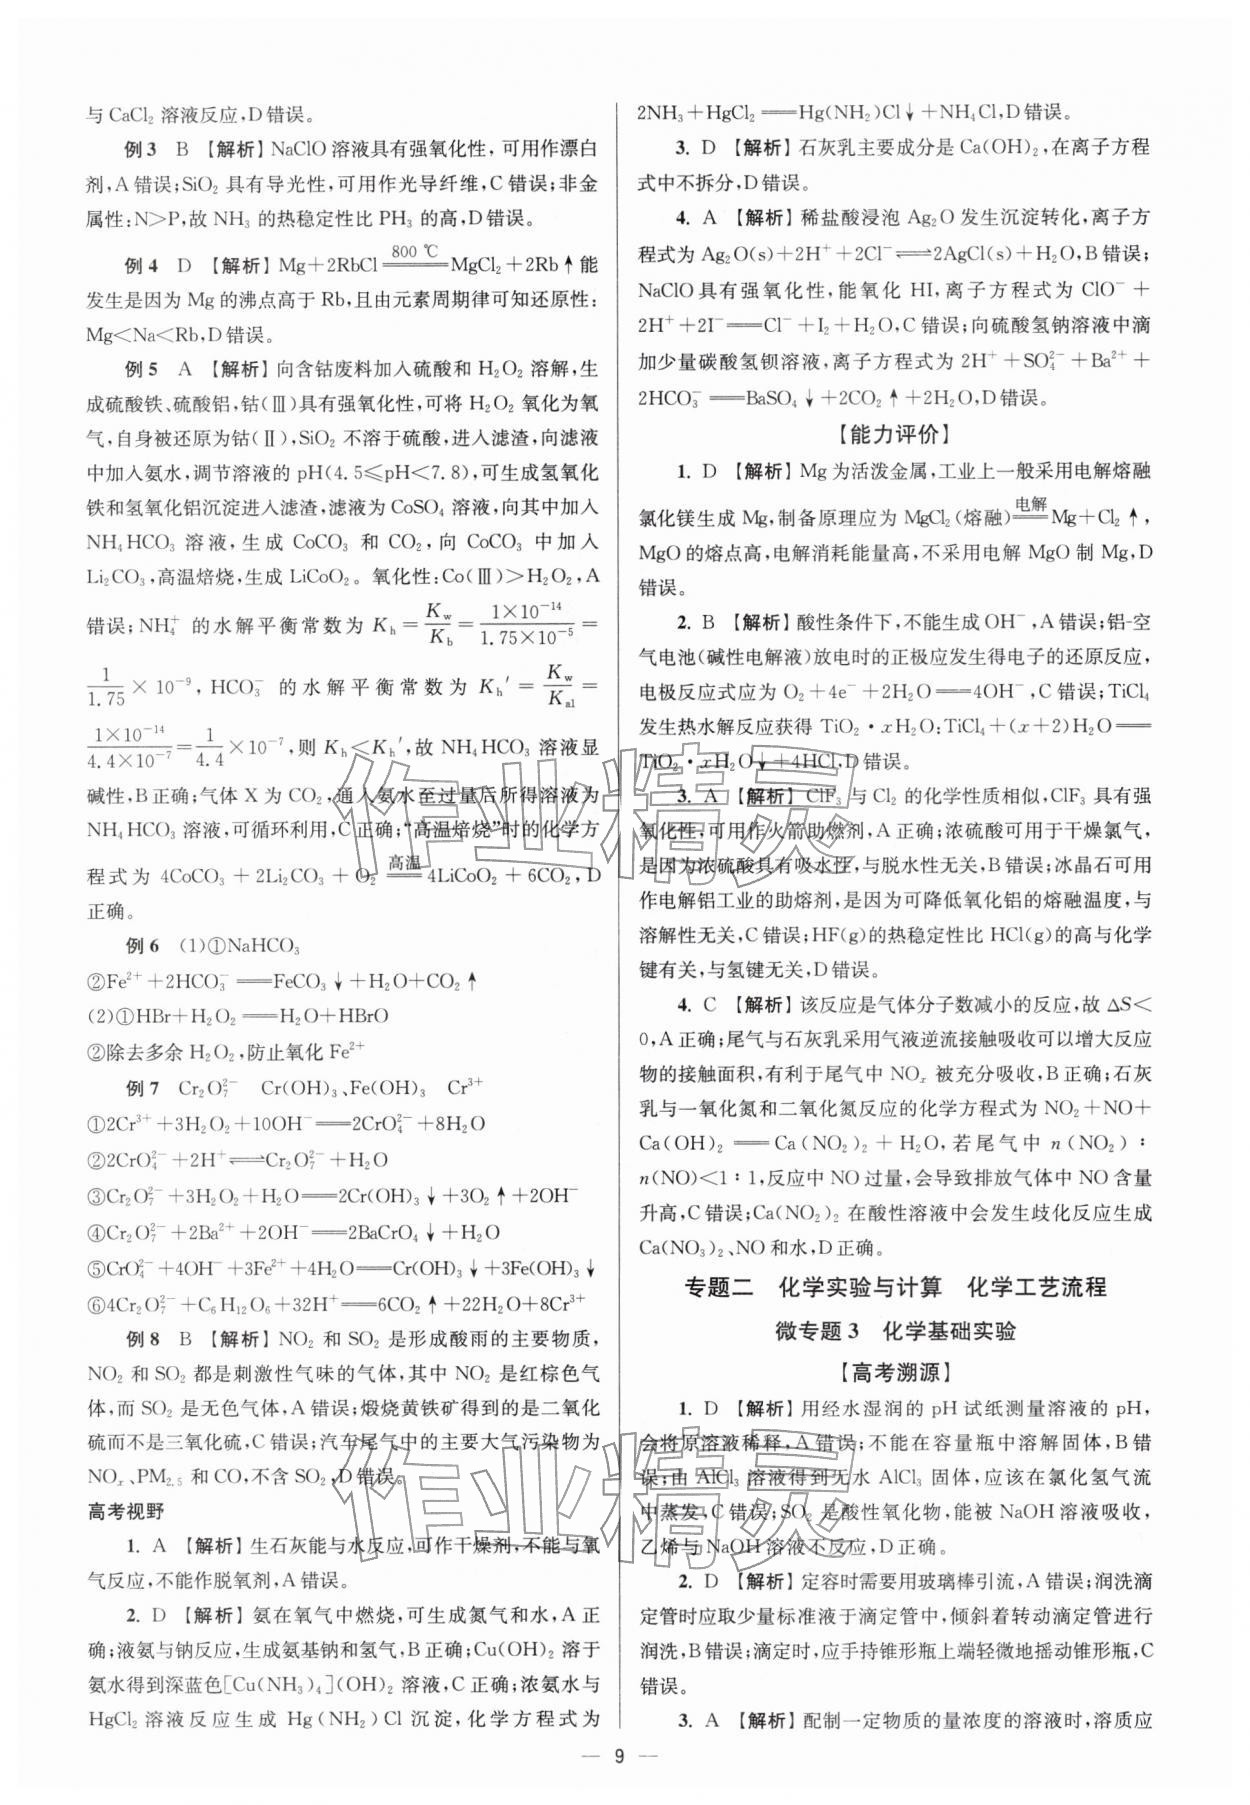 与 CaCl₂ 溶液反应,D 错误。
例 3 B 【解析】NaClO 溶液具有强氧化性,可用作漂白
剂,A 错误;SiO₂ 具有导光性,可用作光导纤维,C 错误;非金
属性:N>P,故 NH₃ 的热稳定性比 PH₃ 的高,D 错误。
例 4 D 【解析】Mg+2RbCl══(800 ℃)MgCl₂+2Rb↑能
发生是因为 Mg 的沸点高于 Rb,且由元素周期律可知还原性:
Mg<Na<Rb,D 错误。
例 5 A 【解析】向含钴废料加入硫酸和 H₂O₂ 溶解,生
成硫酸铁、硫酸铝,钴(Ⅲ)具有强氧化性,可将 H₂O₂ 氧化为氧
气,自身被还原为钴(Ⅱ),SiO₂ 不溶于硫酸,进入滤渣,向滤液
中加入氨水,调节溶液的 pH(4.5≤pH<7.8),可生成氢氧化
铁和氢氧化铝沉淀进入滤渣,滤液为 CoSO₄ 溶液,向其中加入
NH₄HCO₃ 溶液,生成 CoCO₃ 和 CO₂,向 CoCO₃ 中加入
Li₂CO₃,高温焙烧,生成 LiCoO₂。氧化性:Co(Ⅲ)>H₂O₂,A
错误;NH₄⁺ 的水解平衡常数为 K_h=K_w/K_b=(1×10⁻¹⁴)/(1.75×10⁻⁵)=
1/1.75×10⁻⁹,HCO₃⁻ 的水解平衡常数为 K_h′=K_w/K_a1=
(1×10⁻¹⁴)/(4.4×10⁻⁷)=1/4.4×10⁻⁷,则 K_h<K_h′,故 NH₄HCO₃ 溶液显
碱性,B 正确;气体 X 为 CO₂,通入氨水至过量后所得溶液为
NH₄HCO₃ 溶液,可循环利用,C 正确;“高温焙烧”时的化学方
程式为 4CoCO₃+2Li₂CO₃+O₂══(高温)4LiCoO₂+6CO₂,D
正确。
例 6 (1)①NaHCO₃
②Fe²⁺+2HCO₃⁻══FeCO₃↓+H₂O+CO₂↑
(2)①HBr+H₂O₂══H₂O+HBrO
②除去多余 H₂O₂,防止氧化 Fe²⁺
例 7 Cr₂O₇²⁻ Cr(OH)₃、Fe(OH)₃ Cr³⁺
①2Cr³⁺+3H₂O₂+10OH⁻══2CrO₄²⁻+8H₂O
②2CrO₄²⁻+2H⁺⇌Cr₂O₇²⁻+H₂O
③Cr₂O₇²⁻+3H₂O₂+H₂O══2Cr(OH)₃↓+3O₂↑+2OH⁻
④Cr₂O₇²⁻+2Ba²⁺+2OH⁻══2BaCrO₄↓+H₂O
⑤CrO₄²⁻+4OH⁻+3Fe²⁺+4H₂O══Cr(OH)₃↓+3Fe(OH)₃↓
⑥4Cr₂O₇²⁻+C₆H₁₂O₆+32H⁺══6CO₂↑+22H₂O+8Cr³⁺
例 8 B 【解析】NO₂ 和 SO₂ 是形成酸雨的主要物质,
NO₂ 和 SO₂ 都是刺激性气味的气体,其中 NO₂ 是红棕色气
体,而 SO₂ 是无色气体,A 错误;煅烧黄铁矿得到的是二氧化
硫而不是三氧化硫,C 错误;汽车尾气中的主要大气污染物为
NOₓ、PM₂.₅ 和 CO,不含 SO₂,D 错误。
高考视野
1. A 【解析】生石灰能与水反应,可作干燥剂,不能与氧
气反应,不能作脱氧剂,A 错误。
2. D 【解析】氨在氧气中燃烧,可生成氮气和水,A 正
确;液氨与钠反应,生成氨基钠和氢气,B 正确;Cu(OH)₂ 溶于
氨水得到深蓝色[Cu(NH₃)₄](OH)₂ 溶液,C 正确;浓氨水与
HgCl₂ 溶液反应生成 Hg(NH₂)Cl 沉淀,化学方程式为
2NH₃+HgCl₂══Hg(NH₂)Cl↓+NH₄Cl,D 错误。
3. D 【解析】石灰乳主要成分是 Ca(OH)₂,在离子方程
式中不拆分,D 错误。
4. A 【解析】稀盐酸浸泡 Ag₂O 发生沉淀转化,离子方
程式为 Ag₂O(s)+2H⁺+2Cl⁻⇌2AgCl(s)+H₂O,B 错误;
NaClO 具有强氧化性,能氧化 HI,离子方程式为 ClO⁻+
2H⁺+2I⁻══Cl⁻+I₂+H₂O,C 错误;向硫酸氢钠溶液中滴
加少量碳酸氢钡溶液,离子方程式为 2H⁺+SO₄²⁻+Ba²⁺+
2HCO₃⁻══BaSO₄↓+2CO₂↑+2H₂O,D 错误。
【能力评价】
1. D 【解析】Mg 为活泼金属,工业上一般采用电解熔融
氯化镁生成 Mg,制备原理应为 MgCl₂(熔融)══(电解)Mg+Cl₂↑,
MgO 的熔点高,电解消耗能量高,不采用电解 MgO 制 Mg,D
错误。
2. B 【解析】酸性条件下,不能生成 OH⁻,A 错误;铝-空
气电池(碱性电解液)放电时的正极应发生得电子的还原反应,
电极反应式应为 O₂+4e⁻+2H₂O══4OH⁻,C 错误;TiCl₄
发生热水解反应获得 TiO₂·xH₂O:TiCl₄+(x+2)H₂O══
TiO₂·xH₂O↓+4HCl,D 错误。
3. A 【解析】ClF₃ 与 Cl₂ 的化学性质相似,ClF₃ 具有强
氧化性,可用作火箭助燃剂,A 正确;浓硫酸可用于干燥氯气,
是因为浓硫酸具有吸水性,与脱水性无关,B 错误;冰晶石可用
作电解铝工业的助熔剂,是因为可降低氧化铝的熔融温度,与
溶解性无关,C 错误;HF(g)的热稳定性比 HCl(g)的高与化学
键有关,与氢键无关,D 错误。
4. C 【解析】该反应是气体分子数减小的反应,故 ΔS<
0,A 正确;尾气与石灰乳采用气液逆流接触吸收可以增大反应
物的接触面积,有利于尾气中 NOₓ 被充分吸收,B 正确;石灰
乳与一氧化氮和二氧化氮反应的化学方程式为 NO₂+NO+
Ca(OH)₂══Ca(NO₂)₂+H₂O,若尾气中 n(NO₂)∶
n(NO)<1∶1,反应中 NO 过量,会导致排放气体中 NO 含量
升高,C 错误;Ca(NO₂)₂ 在酸性溶液中会发生歧化反应生成
Ca(NO₃)₂、NO 和水,D 正确。
专题二 化学实验与计算 化学工艺流程
微专题 3 化学基础实验
【高考溯源】
1. D 【解析】用经水湿润的 pH 试纸测量溶液的 pH,
会将原溶液稀释,A 错误;不能在容量瓶中溶解固体,B 错
误;由 AlCl₃ 溶液得到无水 AlCl₃ 固体,应该在氯化氢气流
中蒸发,C 错误;SO₂ 是酸性氧化物,能被 NaOH 溶液吸收,
乙烯与 NaOH 溶液不反应,D 正确。
2. D 【解析】定容时需要用玻璃棒引流,A 错误;润洗滴
定管时应取少量标准液于滴定管中,倾斜着转动滴定管进行
润洗,B 错误;滴定时,应手持锥形瓶上端轻微地摇动锥形瓶,C
错误。
3. A 【解析】配制一定物质的量浓度的溶液时,溶质应
— 9 —
作业精灵
作业精灵